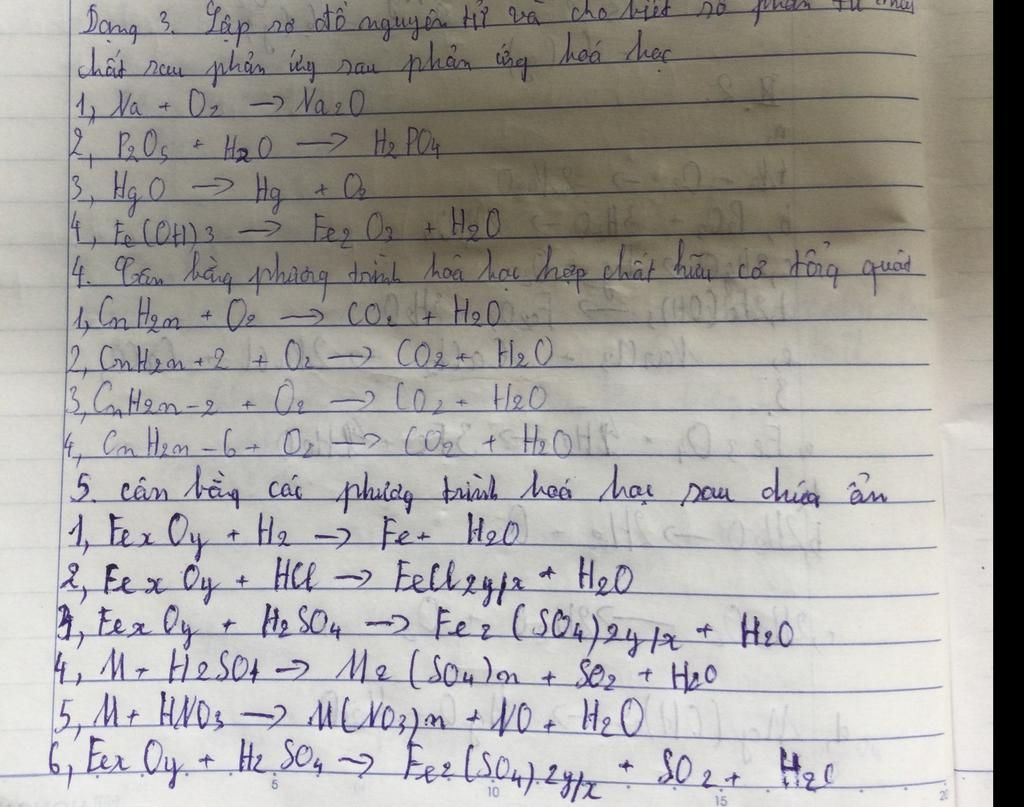 Dạng 3. Lập sơ đồ nguyên tử và cho biết số phân tử mỗi
chất sau phản ứng sau phản ứng hoá học
1, Na + O2 → Na2O
2, P2O5 + H2O → H2PO4
3, HgO → Hg + O2
4, Fe(OH)3 → Fe2O3 + H2O
4. Cân bằng phương trình hoá học hợp chất hữu cơ tổng quát
1, CnH2n + O2 → CO2 + H2O
2, CnH2n+2 + O2 → CO2 + H2O
3, CnH2n-2 + O2 → CO2 + H2O
4, CnH2n-6 + O2 → CO2 + H2O
5. cân bằng các phương trình hoá học sau chứa ẩn
1, FexOy + H2 → Fe + H2O
2, FexOy + HCl → FeCl2y/x + H2O
3, FexOy + H2SO4 → Fe2(SO4)2y/x + H2O
4, M + H2SO4 → M2(SO4)n + SO2 + H2O
5, M + HNO3 → M(NO3)n + NO + H2O
6, FexOy + H2SO4 → Fe2(SO4)2y/x + SO2 + H2O
5 10 15